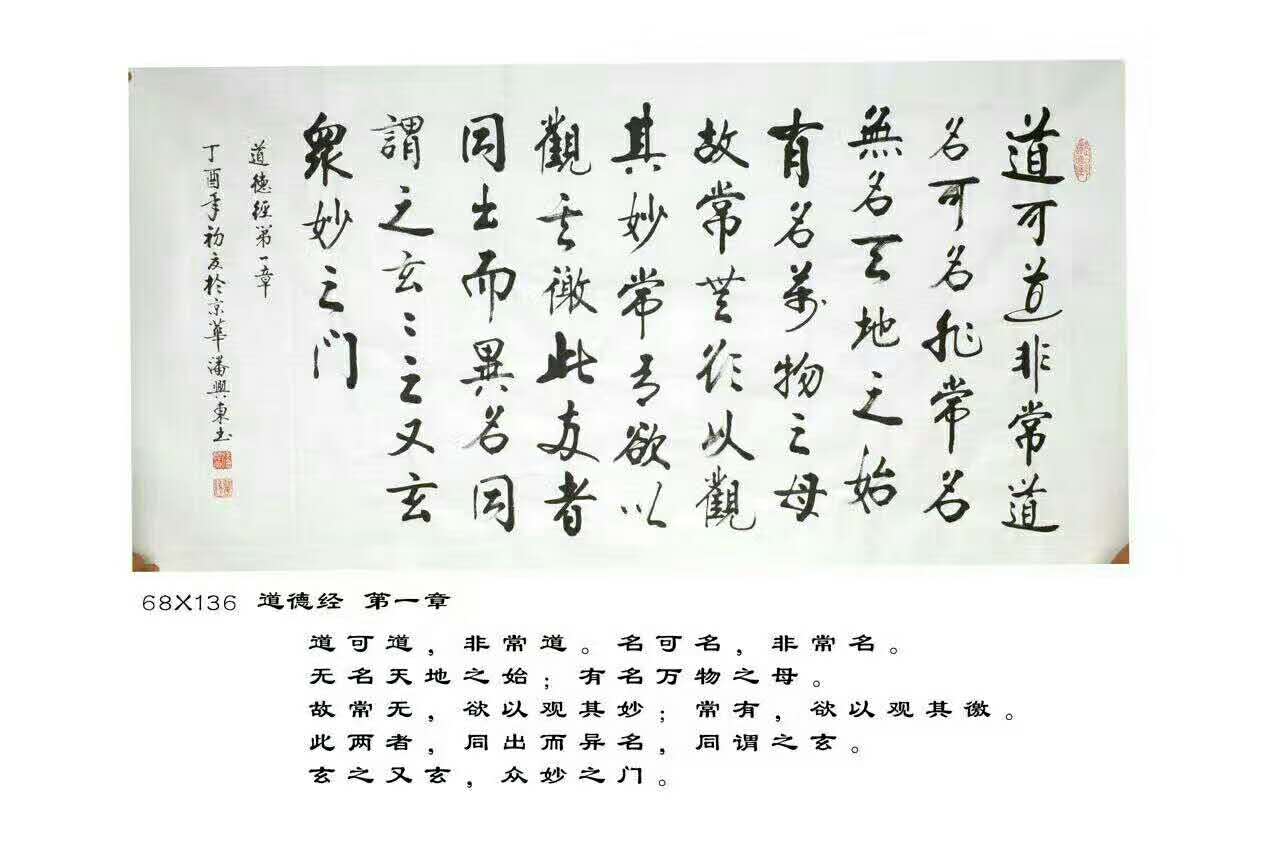 道可道非常道
名可名非常名
無名天地之始
有名萬物之母
故常無欲以觀
其妙常有欲以
觀其徼此兩者
同出而異名同
謂之玄〻之又玄
衆妙之门
道德經第一章
丁酉年初夏於京華潘興東书
68X136 道德经 第一章
道可道，非常道。名可名，非常名。
无名天地之始；有名万物之母。
故常无，欲以观其妙；常有，欲以观其徼。
此两者，同出而异名，同谓之玄。
玄之又玄，众妙之门。